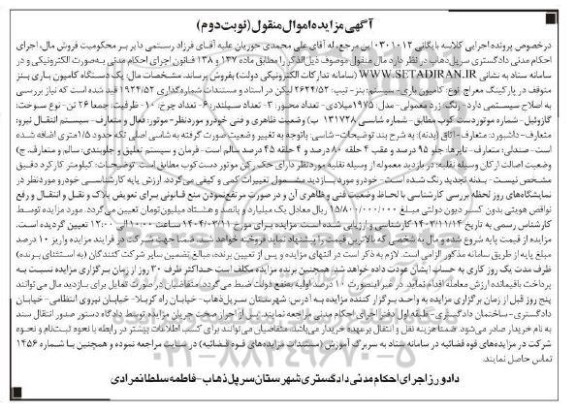 آگهی مزایده اموال منقول (نوبت دوم)
درخصوص پرونده اجرایی کلاسه بایگانی ۰۳۰۱۰۱۲ این مرجع، له آقای علی محمدی حوریان علیه آقای فرزاد رستمی دایر بر محکومیت فروش مال، اجرای
احکام مدنی دادگستری سرپل‌ذهاب در نظر دارد مال منقول موصوف ذیل‌الذکر را مطابق ماده ۱۳۷ و ۱۳۸ قانون اجرای احکام مدنی به‌صورت الکترونیکی و در
سامانه ستاد به نشانی WWW.SETADIRAN.IR (سامانه تدارکات الکترونیکی دولت) بفروش برساند. مشخصات مال: یک دستگاه کامیون باری بنز
متوقف در پارکینگ معراج نوع: کامیون باری - سیستم: بنز - تیپ: ۲۶۲۴/۵۲ لیکن در اسناد و مستندات شماره‌گذاری ۱۹۲۴/۵۲ قید شده است که نیاز بررسی
به اصلاح سیستمی دارد - رنگ: زرد معمولی - مدل: ۱۹۷۵میلادی - تعداد محور: ۳ - تعداد سیلندر: ۶ - تعداد چرخ: ۱۰ - ظرفیت: جمعا ۲۶ تن - نوع سوخت:
گازوئیل - شماره موتور دست کوب مطابق - شماره شاسی: ۱۳۱۷۲۸ ب) وضعیت ظاهری و فنی خودرو موردنظر - موتور: فعال و متعارف - سیستم انتقال نیرو:
متعارف - داشبورد: متعارف - اتاق (بدنه): به شرح بند توضیحات - شاسی: باتوجه به تغییر وضعیت صورت گرفته به شاسی اصلی تکه حدود ۱/۵متری اضافه شده
است - صندلی: متعارف - تایرها: جلو ۹۵ درصد و عقب ۴ حلقه ۸۰ درصد و ۴ حلقه ۴۵ درصد سالم است - فرمان و سیستم تعلیق و جلوبندی: سالم و متعارف. ج)
وضعیت اصالت ارکان وسیله نقلیه: در بازدید معموله از وسیله نقلیه موردنظر دارای حک رکن موتور دست کوب مطابق است. توضیحات: کیلومتر کارکرد دقیق
مشخص نیست - بدنه تجدید رنگ شده است - خودرو مورد بازدید مشمول تغییرات کمی و کیفی می‌گردد. ارزش پایه کارشناسی خودرو موردنظر در
نمایشگاه‌های روز لحظه بررسی کارشناسی با لحاظ وضعیت فنی و ظاهری آن و در صورت مرتفع نمودن منع قانونی برای تعویض پلاک و نقل و انتقال و رفع
نواقص هویتی بدون کسر دیون دولتی مبلغ ۱۵/۸۰۰/۰۰۰/۰۰۰ ریال معادل یک میلیارد و پانصد و هشتاد میلیون‌تومان تعیین می‌گردد. مورد مزایده توسط
کارشناس رسمی به تاریخ ۱۴۰۳/۱۱/۱۴ کارشناسی و ارزیابی شده است. مزایده برای مورخ ۱۴۰۴/۰۳/۱۱ ساعت ۱۰:۰۰ الی ۱۲:۰۰ تعیین گردیده است.
مزایده از قیمت پایه شروع شده و مال به شخصی که بالاترین قیمت را پیشنهاد نماید فروخته خواهد شد. ضمنا جهت شرکت در فرایند مزایده واریز ۱۰ درصد
مبلغ پایه از طریق سامانه مذکور الزامی است. لازم به ذکر است در انتهای مزایده و پس از تعیین برنده، مبالغ تضمین سایر شرکت کنندگان (به استثنای برنده)
ظرف مدت یک روز کاری به حساب ایشان عودت داده خواهد شد. همچنین برنده مزایده مکلف است حداکثر ظرف ۳۰ روز از زمان برگزاری مزایده نسبت به
پرداخت باقیمانده ارزش معامله اقدام نماید. در غیر اینصورت ۱۰ درصد اولیه به‌نفع دولت ضبط می‌گردد. متقاضیان در صورت تمایل برای بازدید مال می‌توانند
پنج روز قبل از زمان برگزاری مزایده به واحد برگزار کننده مزایده به آدرس شهرستان سرپل‌ذهاب - خیابان راه کربلا - خیابان نیروی انتظامی - خیابان
دادگستری - ساختمان دادگستری - طبقه اول دفتر اجرای احکام مدنی مراجعه نمایند. پس از احراز صحت جریان مزایده توسط دادگاه دستور صدور انتقال سند
به نام خریدار صادر می‌شود ضمنا هزینه نقل و انتقال برعهده خریدار می‌باشد. متقاضیان می‌توانند برای کسب اطلاعات بیشتر در رابطه با نحوه ثبت‌نام و نحوه
شرکت در مزایده‌های قوه قضائیه در سامانه ستاد به سربرگ آموزش (مستندات مزایده‌های قوه قضائیه) در سایت مراجعه نموده و همچنین با شماره ۱۴۵۶
تماس حاصل نمایند.
دادورز اجرای احکام مدنی دادگستری شهرستان سرپل ذهاب - فاطمه سلطانمرادی
۰۲۱-۸۸۳۴۹۶۷۰-۵